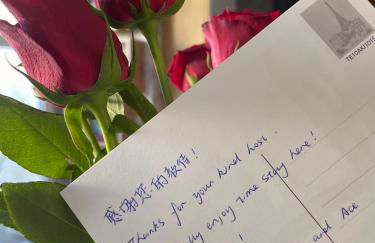 感谢您的款待！
Thanks for your kind host.
enjoy time stay here!
and Ace
TE10AK01015